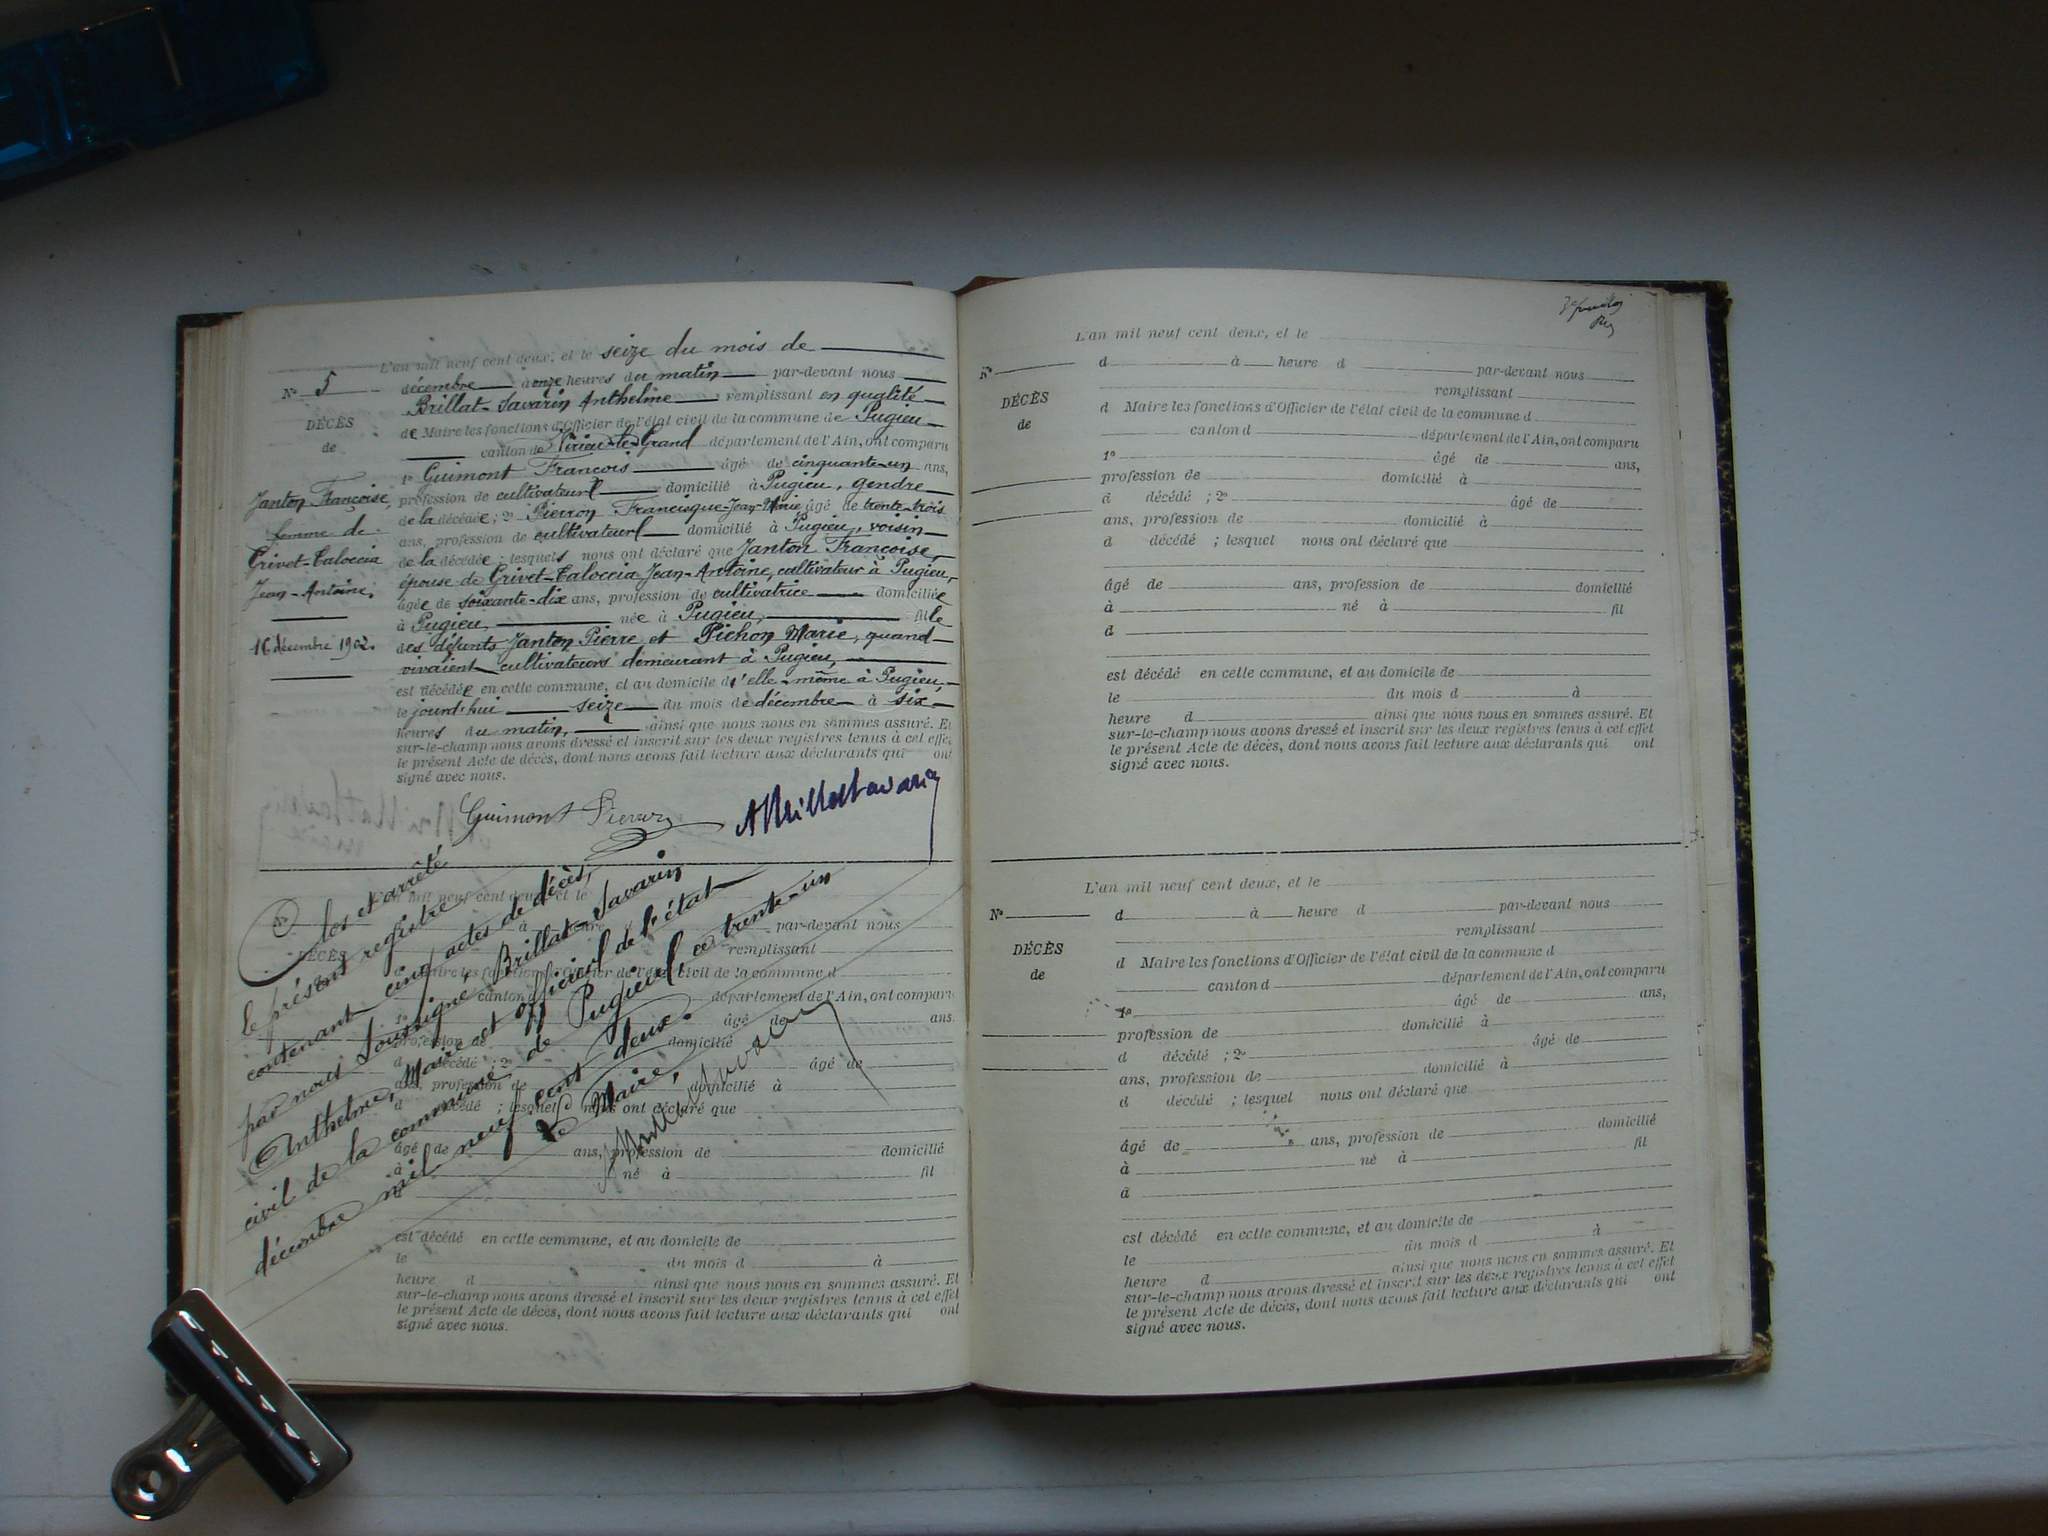 L'an mil neuf cent deux, et le seize du mois de
N° 5
décembre à onze heures du matin par-devant nous
Brillat-Savarin Anthelme remplissant en qualité
DÉCÈS
de Maire les fonctions d'Officier de l'état civil de la commune de Pugieu
de
canton de Virieu-le-Grand département de l'Ain, ont comparu
1° Guimont François âgé de cinquante-un ans,
profession de cultivateur domicilié à Pugieu, gendre
de la décédée ; 2° Pierron Francisque-Jean-Marie âgé de trente-trois
ans, profession de cultivateur domicilié à Pugieu, voisin
de la décédée ; lesquels nous ont déclaré que Janton Françoise,
épouse de Grivet-Taloccia Jean-Antoine, cultivateur à Pugieu,
âgée de soixante-dix ans, profession de cultivatrice domiciliée
à Pugieu, née à Pugieu, fille
des défunts Janton Pierre et Pichon Marie, quand
vivaient cultivateurs demeurant à Pugieu,
est décédée en cette commune, et au domicile d'elle-même à Pugieu,
le jourd'hui seize du mois de décembre à six
heures du matin, ainsi que nous nous en sommes assuré. Et
sur-le-champ nous avons dressé et inscrit sur les deux registres tenus à cet effet
le présent Acte de décès, dont nous avons fait lecture aux déclarants qui ont
signé avec nous.
Janton Françoise,
femme de
Grivet-Taloccia
Jean-Antoine.
16 décembre 1902.
Guimont Pierron
ABrillatsavarin
Clos et arrêté
le présent registre
contenant cinq actes de décès,
par nous soussigné Brillat-Savarin
Anthelme, Maire et officier de l'état
civil de la commune de Pugieu ce trente-un
décembre mil neuf cent deux.
Le Maire,
L'an mil neuf cent deux, et le
N°
à heure
par-devant nous
remplissant
DÉCÈS
d Maire les fonctions d'Officier de l'état civil de la commune d
canton d département de l'Ain, ont comparu
1° âgé de ans
profession de domicilié
d décédé ; 2° âgé de
ans, profession de domicilié à
d décédé ; lesquel nous ont déclaré que
âgé de ans, profession de domicilié
à né à fil
est décédé en cette commune, et au domicile de
le du mois d à
heure d ainsi que nous nous en sommes assuré. Et
sur-le-champ nous avons dressé et inscrit sur les deux registres tenus à cet effet
le présent Acte de décès, dont nous avons fait lecture aux déclarants qui ont
signé avec nous.
L'an mil neuf cent deux, et le
N° d à heure d par-devant nous
remplissant
DÉCÈS
d Maire les fonctions d'Officier de l'état civil de la commune d
de
canton d département de l'Ain, ont comparu
1° âgé de ans,
profession de domicilié à
d décédé ; 2° âgé de
ans, profession de domicilié à
d décédé ; lesquel nous ont déclaré que
âgé de ans, profession de domicilié
à né à fil
d
est décédé en cette commune, et au domicile de
le du mois d à
heure d ainsi que nous nous en sommes assuré. Et
sur-le-champ nous avons dressé et inscrit sur les deux registres tenus à cet effet
le présent Acte de décès, dont nous avons fait lecture aux déclarants qui ont
signé avec nous.
L'an mil neuf cent deux, et le
N° d à heure d par-devant nous
remplissant
DÉCÈS
d Maire les fonctions d'Officier de l'état civil de la commune d
de
canton d département de l'Ain, ont comparu
1° âgé de ans,
profession de domicilié à
d décédé ; 2° âgé de
ans, profession de domicilié à
d décédé ; lesquel nous ont déclaré que
âgé de ans, profession de domicilié
à né à fil
d
est décédé en cette commune, et au domicile de
le du mois d à
heure d ainsi que nous nous en sommes assuré. Et
sur-le-champ nous avons dressé et inscrit sur les deux registres tenus à cet effet
le présent Acte de décès, dont nous avons fait lecture aux déclarants qui ont
signé avec nous.